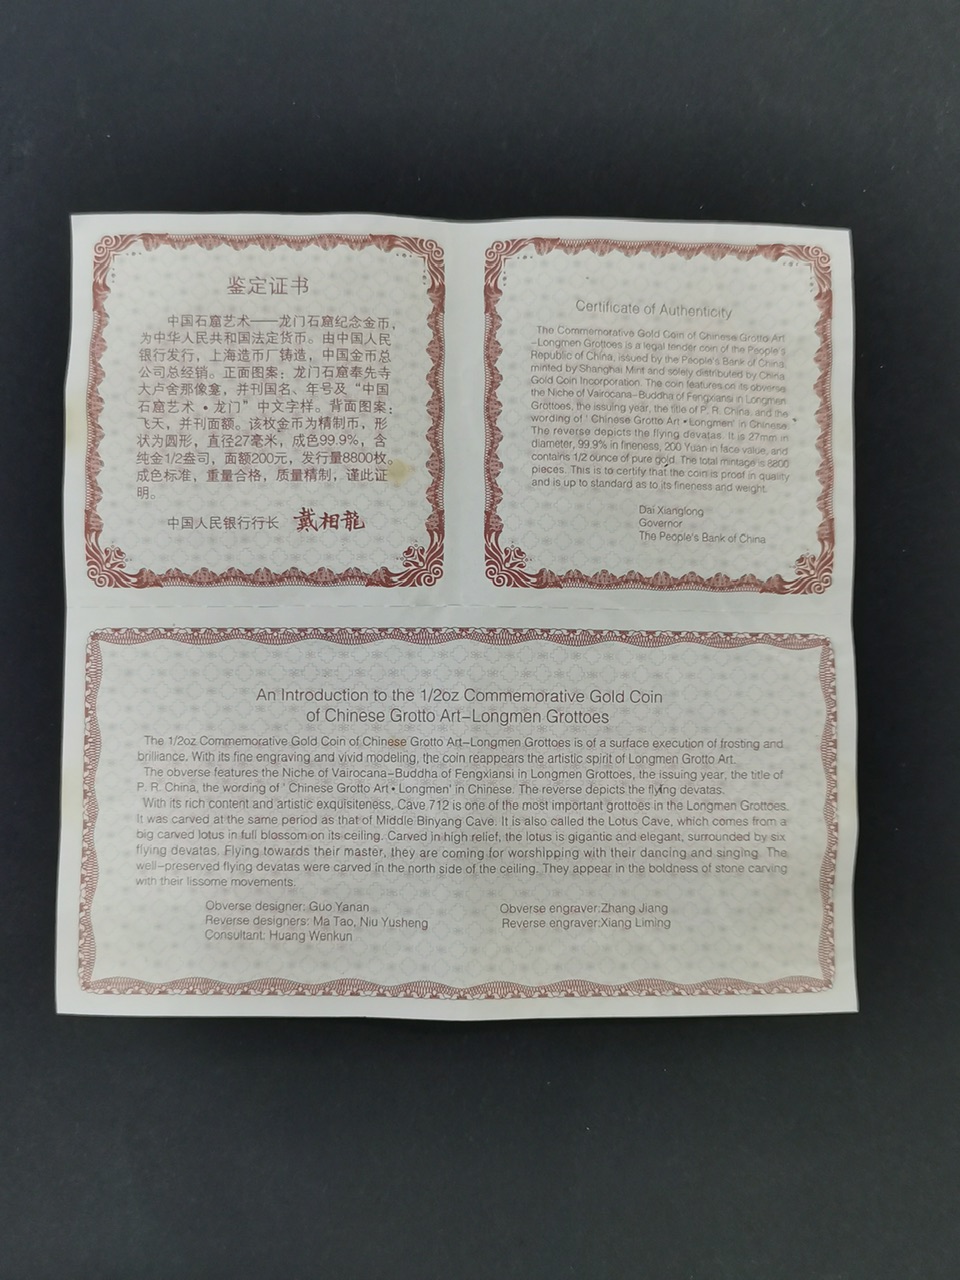 鉴定证书
中国石窟艺术——龙门石窟纪念金币，
为中华人民共和国法定货币。由中国人民
银行发行，上海造币厂铸造，中国金币总
公司总经销。正面图案：龙门石窟奉先寺
大卢舍那像龛，并刊国名、年号及“中国
石窟艺术·龙门”中文字样。背面图案：
飞天，并刊面额。该枚金币为精制币，形
状为圆形，直径27毫米，成色99.9%，含
纯金1/2盎司，面额200元，发行量8800枚。
成色标准，重量合格，质量精制，谨此证
明。
中国人民银行行长 戴相龍
Certificate of Authenticity
The Commemorative Gold Coin of Chinese Grotto Art
-Longmen Grottoes is a legal tender coin of the People's
Republic of China, issued by the People's Bank of China,
minted by Shanghai Mint and solely distributed by China
Gold Coin Incorporation. The coin features on its obverse
the Niche of Vairocana-Buddha of Fengxiansi in Longmen
Grottoes, the issuing year, the title of P. R. China, and the
wording of ' Chinese Grotto Art • Longmen' in Chinese.
The reverse depicts the flying devatas. It is 27mm in
diameter, 99.9% in fineness, 200 Yuan in face value, and
contains 1/2 ounce of pure gold. The total mintage is 8800
pieces. This is to certify that the coin is proof in quality
and is up to standard as to its fineness and weight.
Dai Xianglong
Governor
The People's Bank of China
An Introduction to the 1/2oz Commemorative Gold Coin
of Chinese Grotto Art-Longmen Grottoes
The 1/2oz Commemorative Gold Coin of Chinese Grotto Art-Longmen Grottoes is of a surface execution of frosting and
brilliance. With its fine engraving and vivid modeling, the coin reappears the artistic spirit of Longmen Grotto Art.
The obverse features the Niche of Vairocana-Buddha of Fengxiansi in Longmen Grottoes, the issuing year, the title of
P. R. China, the wording of ' Chinese Grotto Art • Longmen' in Chinese. The reverse depicts the flying devatas.
With its rich content and artistic exquisiteness, Cave 712 is one of the most important grottoes in the Longmen Grottoes.
It was carved at the same period as that of Middle Binyang Cave. It is also called the Lotus Cave, which comes from a
big carved lotus in full blossom on its ceiling. Carved in high relief, the lotus is gigantic and elegant, surrounded by six
flying devatas. Flying towards their master, they are coming for worshipping with their dancing and singing. The
well-preserved flying devatas were carved in the north side of the ceiling. They appear in the boldness of stone carving
with their lissome movements.
Obverse designer: Guo Yanan
Obverse engraver:Zhang Jiang
Reverse designers: Ma Tao, Niu Yusheng
Reverse engraver:Xiang Liming
Consultant: Huang Wenkun